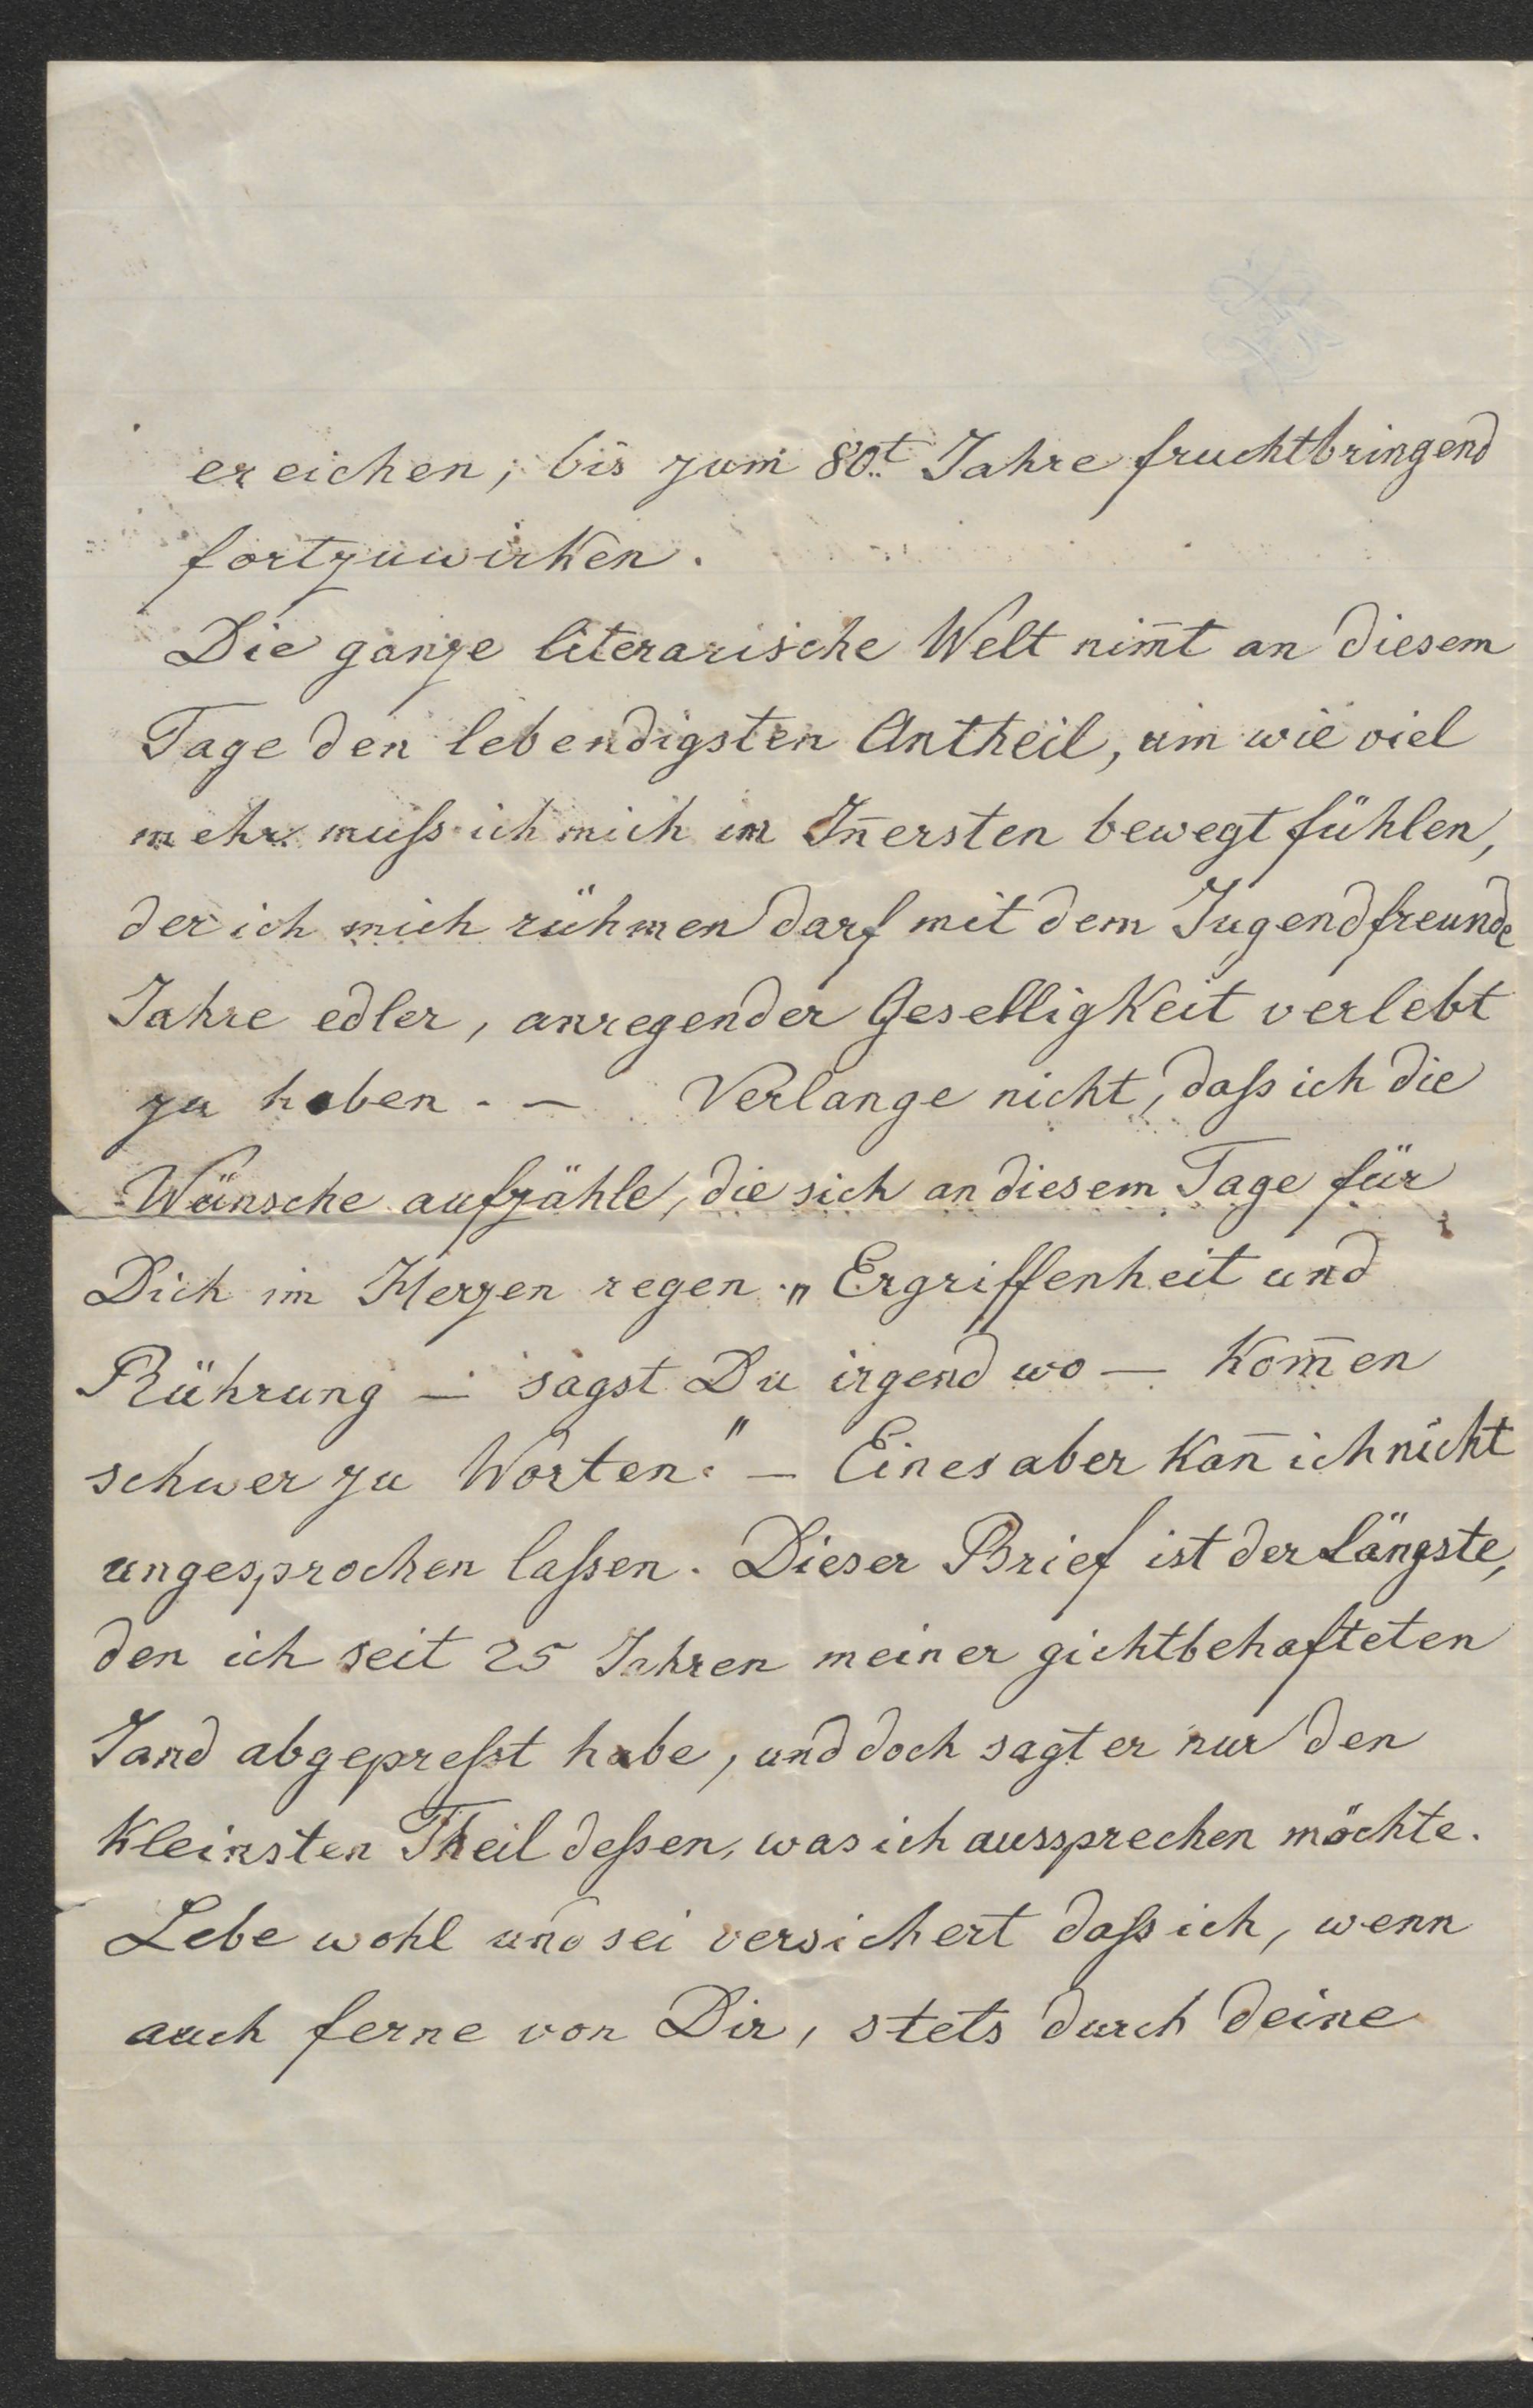 er eichen, bis zum 80t Jahre fruchtbringend
fortzuwirken.
Die ganze literarische Welt nim̄t an diesem
Tage den lebendigsten Antheil, um wie viel
mehr muſs ich mich im In̄ersten bewegt fühlen,
der ich mich rühmen darf mit dem Jugendfreunde
Jahre edler, anregender Geselligkeit verlebt
zu haben. — Verlange nicht, daſs ich die
Wünsche aufzähle, die sich an diesem Tage für
Dich im Herzen regen. „Ergriffenheit und
Rührung — sagst Du irgend wo — kom̄en
schwer zu Worten." — Eines aber kan̄ ich nicht
ungesprochen laſsen. Dieser Brief ist der Längste,
den ich seit 25 Jahren meiner gichtbehafteten
Hand abgepreſst habe, und doch sagt er nur den
kleinsten Theil deſsen, was ich aussprechen möchte.
Lebe wohl und sei versichert daſs ich, wenn
auch ferne von Dir, stets durch deine